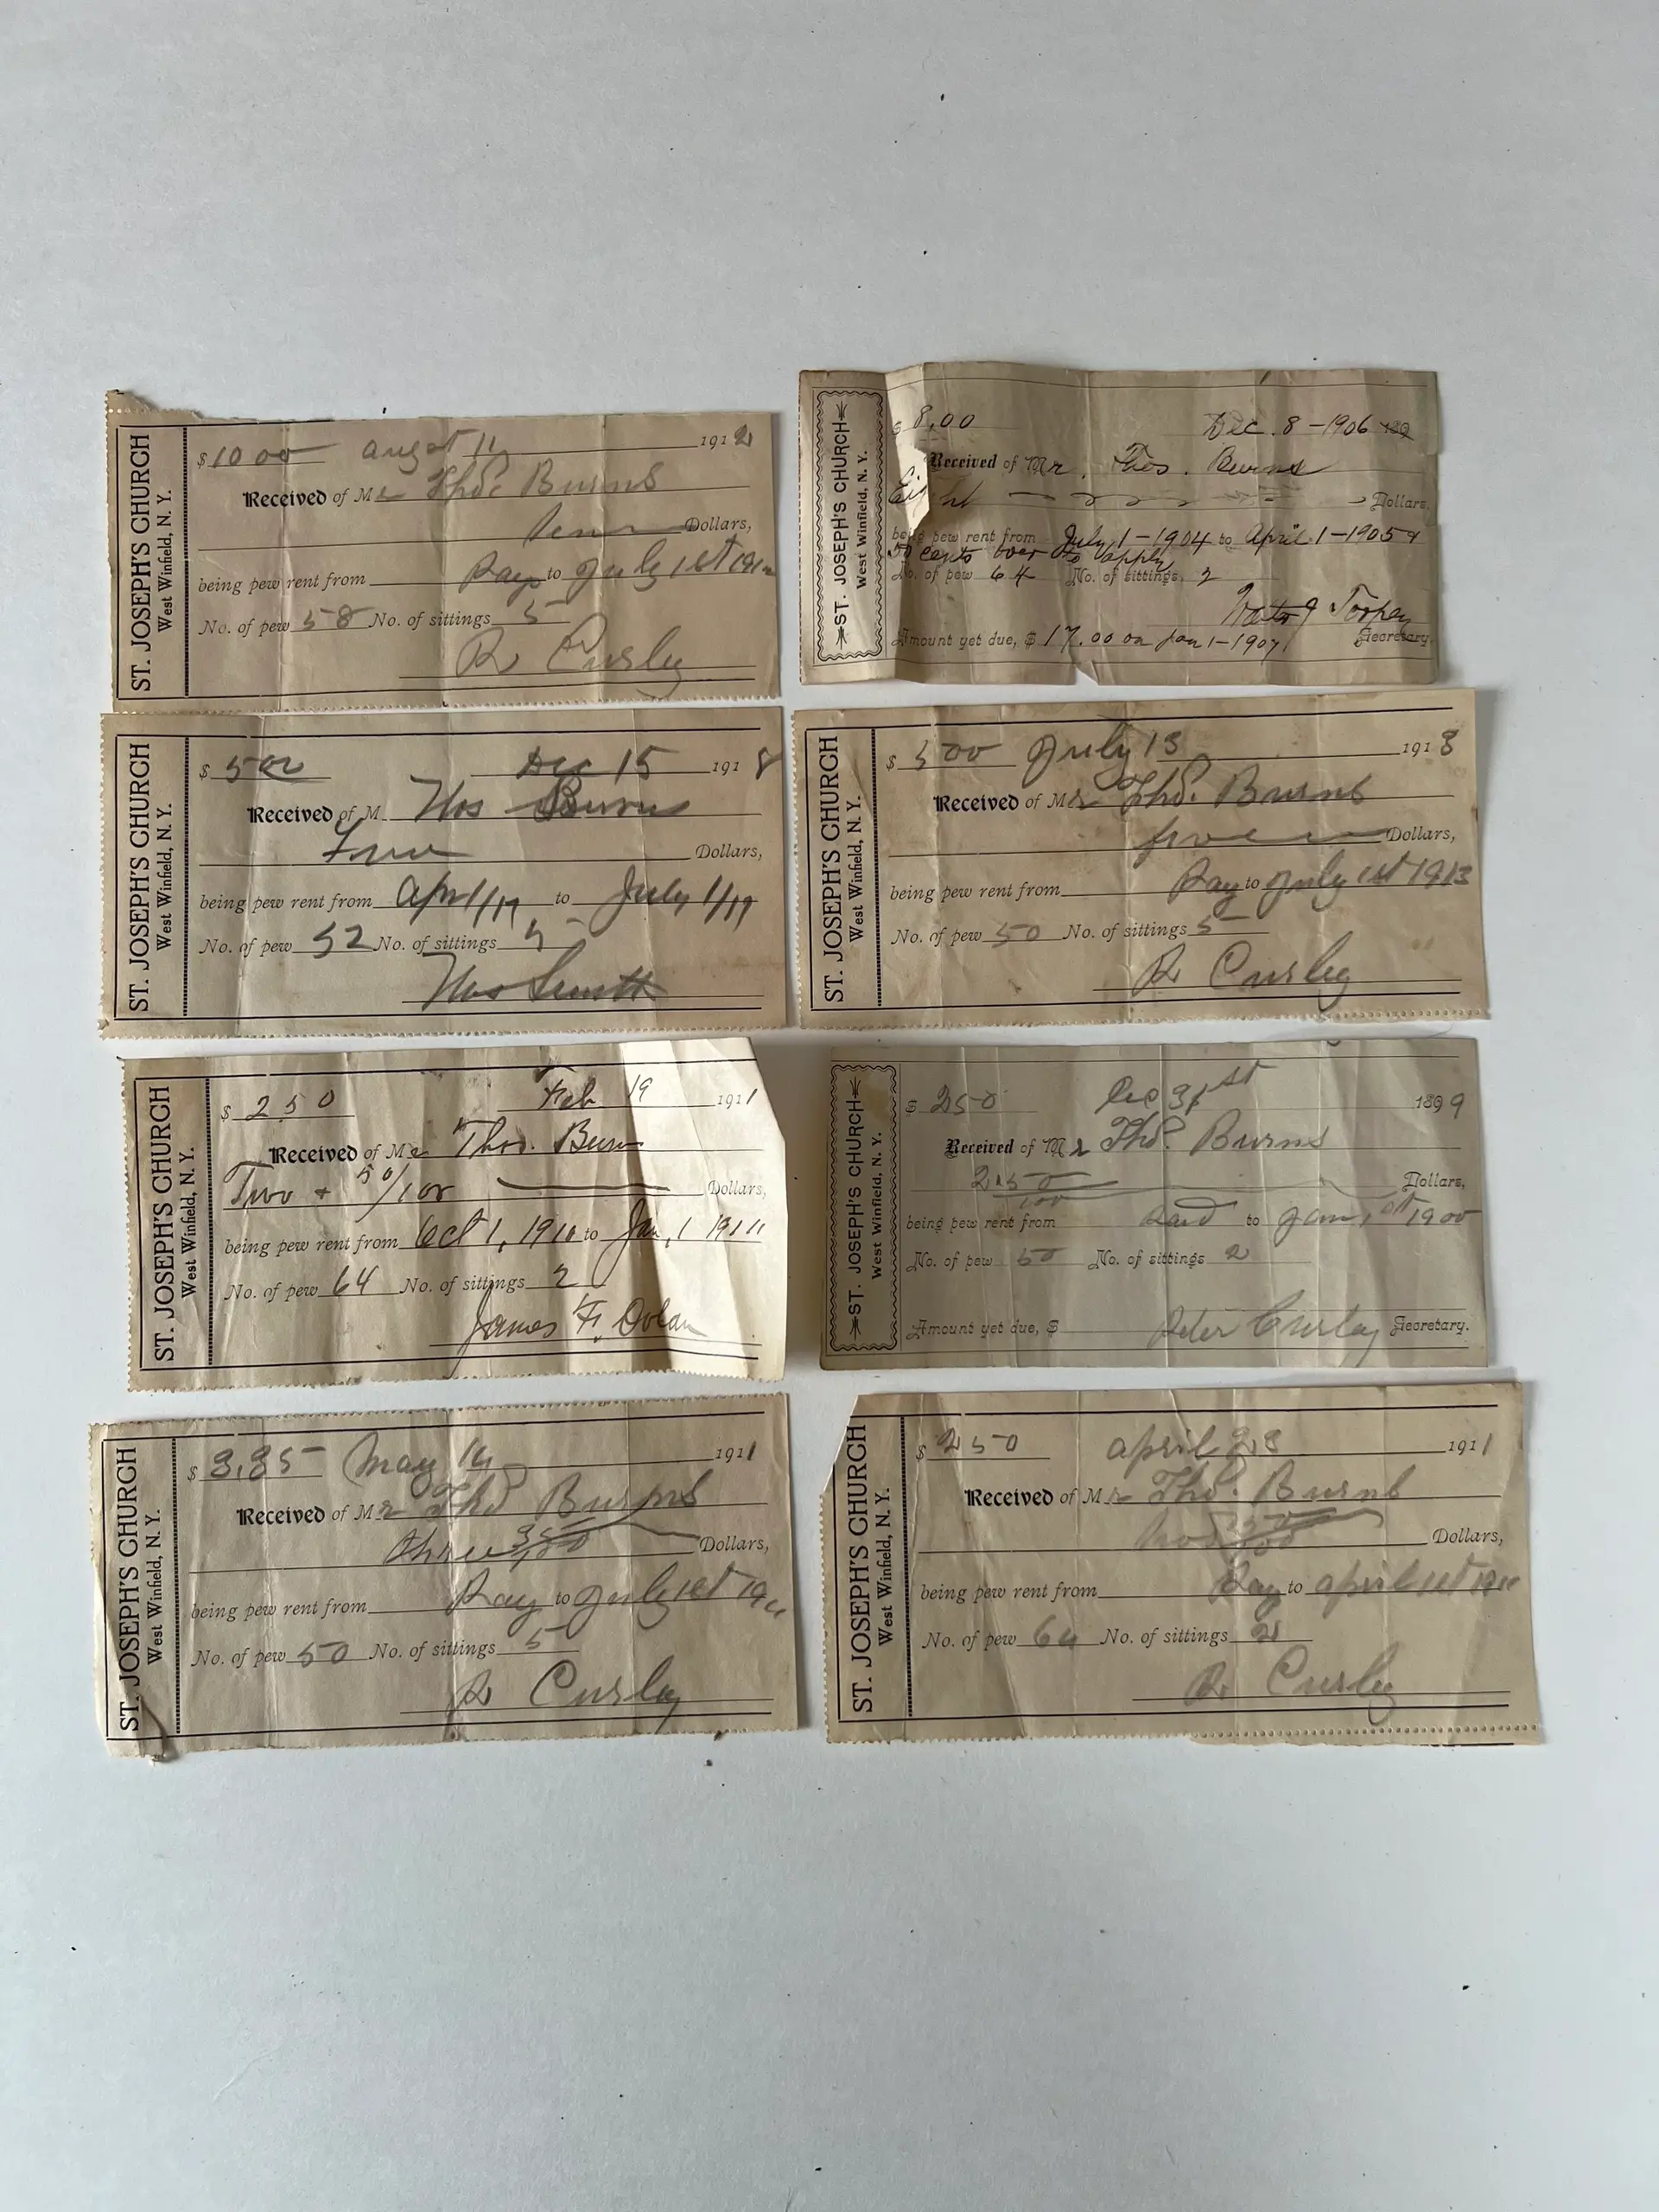 ST. JOSEPH'S CHURCH
West Winfield, N. Y.
$ 10 00 august 11 1912
Received of Mr Thos. Burns
Dollars,
being pew rent from Pay to July 1st 191
No. of pew 58 No. of sittings 5
R Cursley
ST. JOSEPH'S CHURCH
West Winfield, N. Y.
$ 8.00 Dec. 8-1906 189
Received of Mr. Thos. Burns
Eight Dollars,
being pew rent from July 1-1904 to April 1-1905 &
50 cents over to apply
No. of pew 64 No. of sittings, 2
Amount yet due, $ 17.00 on Jan 1-1907 Secretary.
ST. JOSEPH'S CHURCH
West Winfield, N. Y.
$ 5 00 Dec 15 1918
Received of M Thos Burns
Five Dollars,
being pew rent from Apr 1/17 to July 1/17
No. of pew 52 No. of sittings 5
Thos Smith
ST. JOSEPH'S CHURCH
West Winfield, N. Y.
$ 5 00 July 13 191
Received of Mr Thos. Burns
five Dollars,
being pew rent from Pay to July 1st 1913
No. of pew 50 No. of sittings 5
R Cursley
ST. JOSEPH'S CHURCH
West Winfield, N. Y.
$ 2.50 Feb 19 1911
Received of Mr Thos. Burn
Two + 50/100 Dollars,
being pew rent from Oct 1, 1910 to Jan, 1 1911
No. of pew 64 No. of sittings 2
James F. Dolan
ST. JOSEPH'S CHURCH
West Winfield, N. Y.
$ 250 Dec 31st 1899
Received of Mr Thos. Burns
2.50/100 Dollars,
being pew rent from to Jan, 1st 1900
No. of pew 50 No. of sittings 2
Amount yet due, $ Peter Cursley Secretary.
ST. JOSEPH'S CHURCH
West Winfield, N. Y.
$ 3.35 May 14 1911
Received of Mr Thos Burns
three Dollars,
being pew rent from Pay to July 1st 1911
No. of pew 50 No. of sittings 5
R Cursley
ST. JOSEPH'S CHURCH
West Winfield, N. Y.
$ 250 april 23 1911
Received of Mr Thos. Burns
Dollars,
being pew rent from Pay to april 1st 1911
No. of pew 64 No. of sittings 2
R Cursley